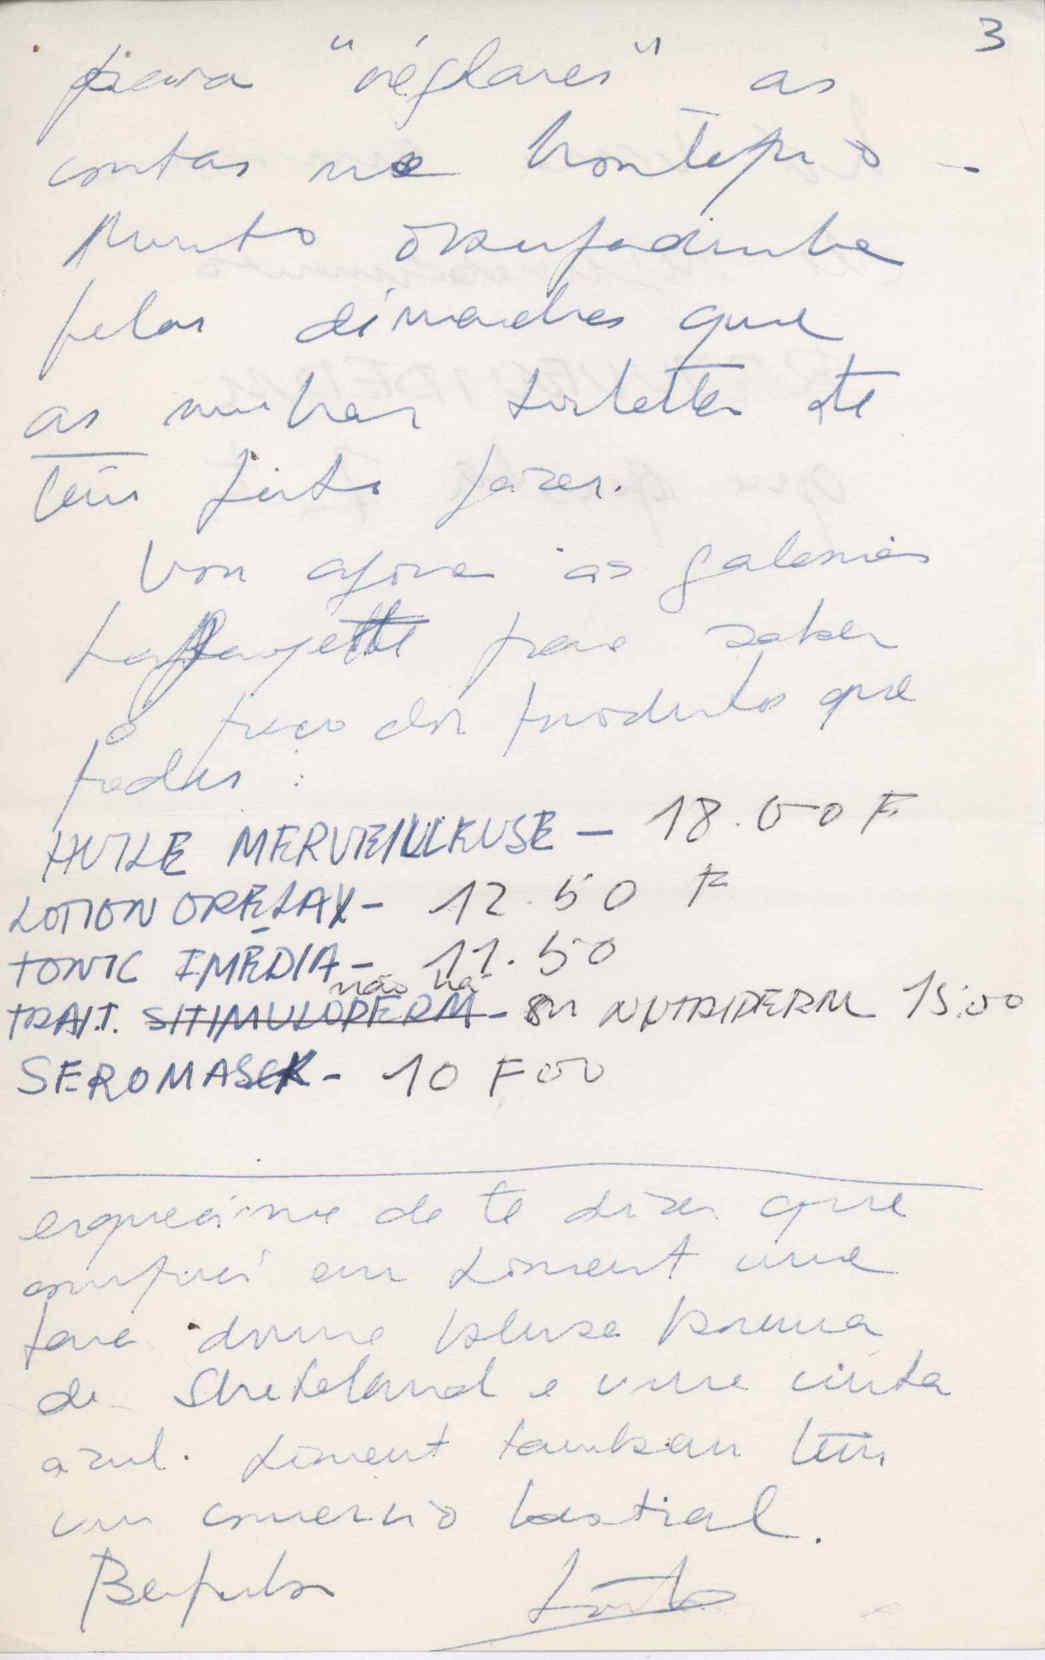 3
para "réglares" as
contas no Montepio -
Muito obrigadinha
pelas démarches que
as minhas toilettes te
têm feito fazer.
Vou agora às galerias
Laffayette para saber
o preço dos produtos que
pedes :
HUILE MERVEILLEUSE - 18.00 F
LOTION ORÉLAX - 12.50 F
TONIC IMÉDIA - 11.50
não há
TRAIT. SITIMULOPERM - ou NUTRIDERM 15.00
SEROMASK - 10 F 00
esqueci-me de te dizer que
comprei em une
para duma blusa
de Sheteland e uma cinta
azul. tambem tem
um comercio bestial.